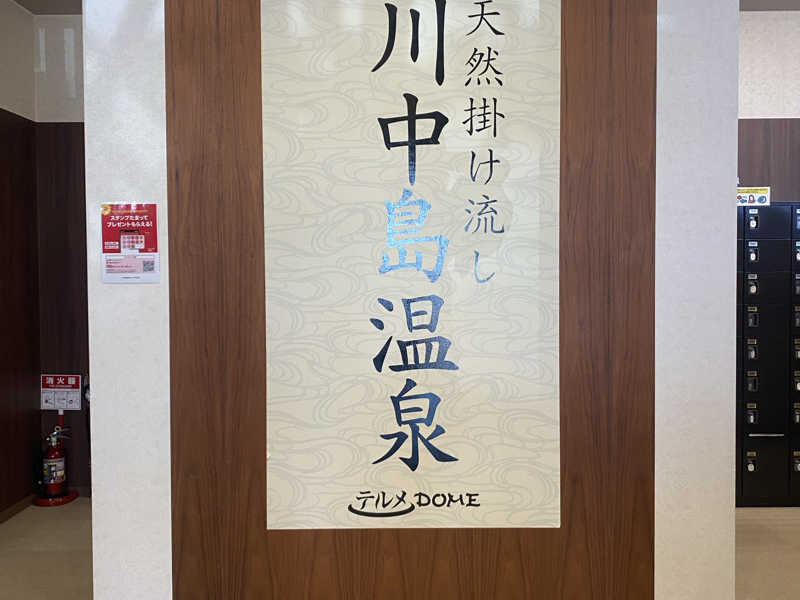 天然掛け流し
川中島温泉
テルメDOME
スタンプためて
プレゼントもらえる!
消火器